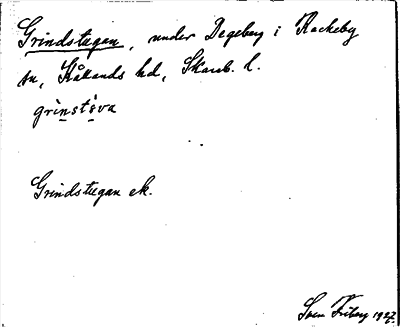 Grindstugan, under Degeberg i Rackeby
sn, Kållands hd, Skarab. l.
grinstsva
Grindstugan ek.
Sven Friberg 1927.